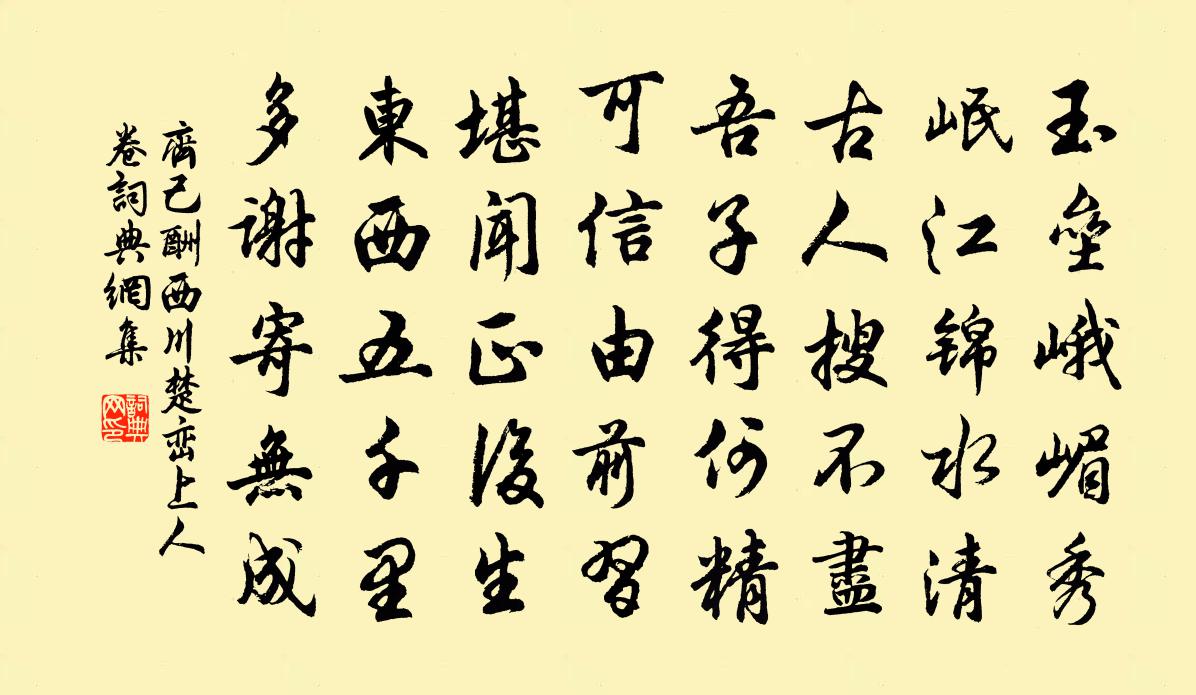 玉壘峨嵋秀
岷江锦水清
古人搜不盡
吾子得何精
可信由前習
堪闻正後生
東西五千里
多谢寄無成
齊己酬西川楚峦上人
卷詞典網集
詞典网印